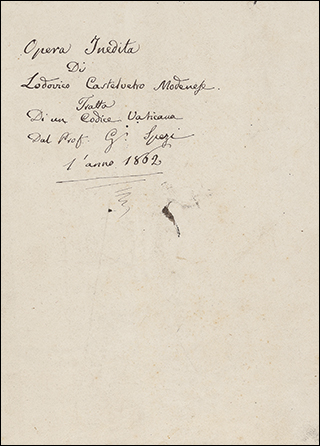 Opera Inedita
Di
Lodovico Castelvetro Modenese.
Tratta
Di un Codice Vaticano
Dal Prof. G. Spezi
l'anno 1862